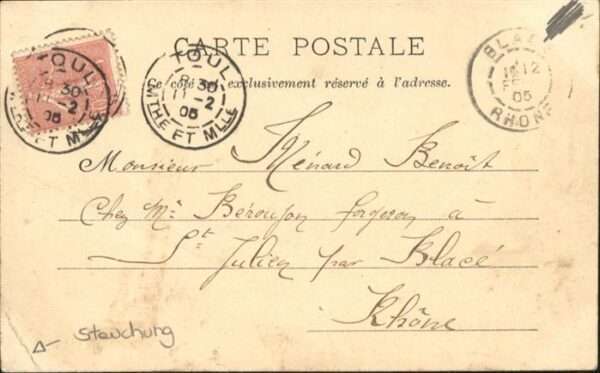 CARTE POSTALE
Ce côté exclusivement réservé à l'adresse.
TOUL
30
11-2
05
MTHE ET MLLE
TOUL
30
11-2
05
MTHE ET MLLE
BLACÉ
12
05
RHONE
Monsieur Ménard Benoît
Chez Mr. Béroujon forgeron à
St Julien par Blacé
Rhône
Stauchung